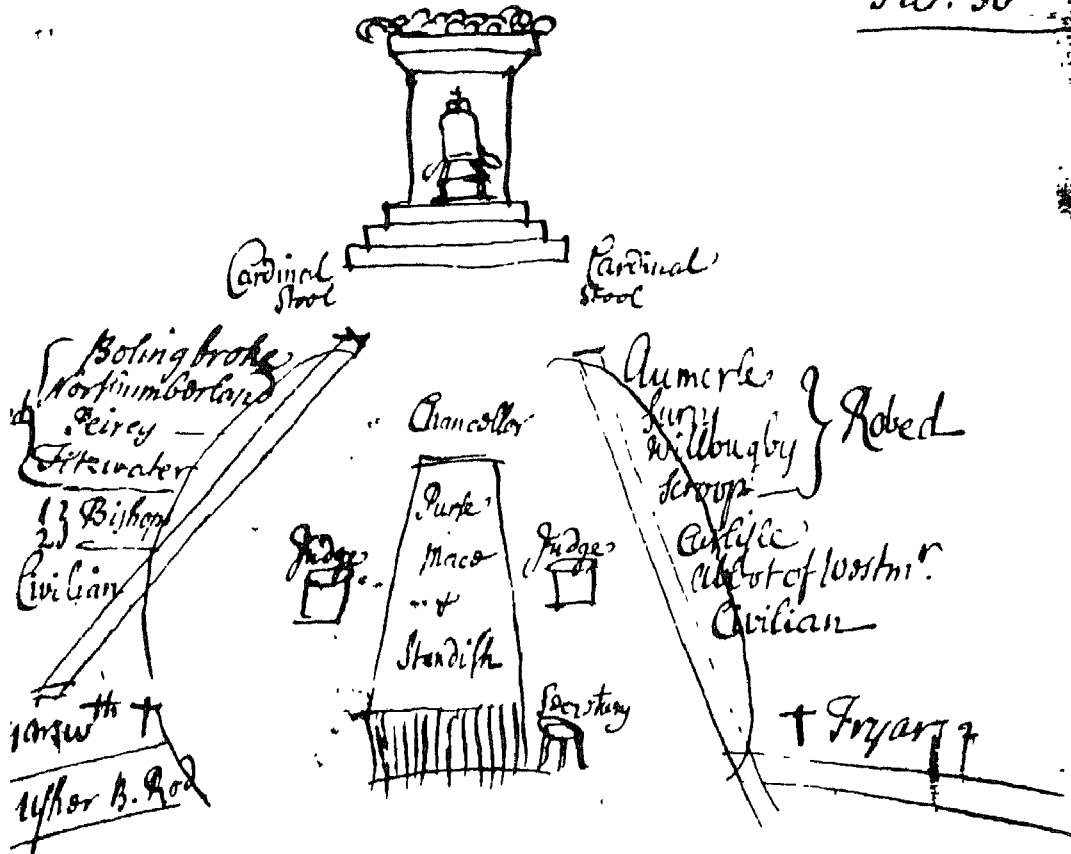 Cardinal
Stool
Cardinal
Stool
Bolingbroke
Northumberland
Peircy
Fitzwater
1} Bishop
2}
Civilian
Chancellor
Purse
Mace
&
Standish
Judge
Judge
Secretary
Aumerle
Surry
Willougby
Scroop
Robed
Carlisle
Abbot of Westmr.
Civilian
† Fryars
Usher B. Rod